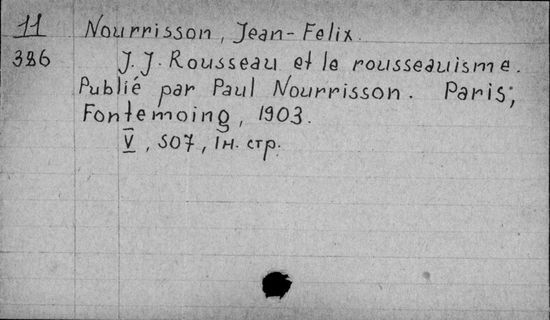 11 Nourrisson, Jean-Felix.
386 J. J. Rousseau et le rousseauisme.
Publié par Paul Nourrisson. Paris;
Fontemoing, 1903.
V, 507, Iн. стр.